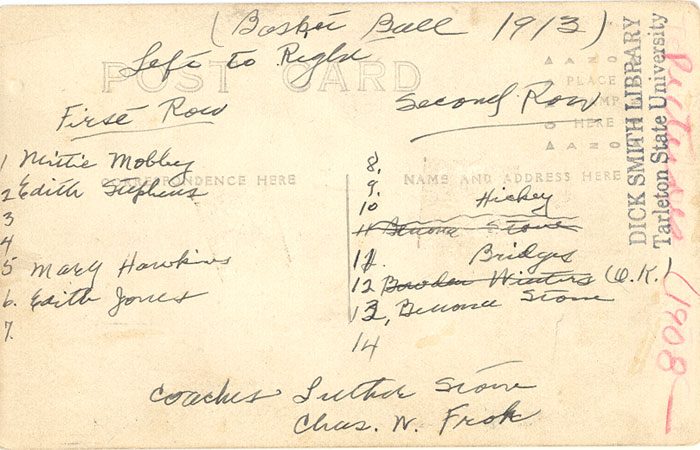 (Basket Ball 1913)
Left to Right
POST CARD
First Row
Second Row
AZO
PLACE
STAMP
HERE
AZO
CORRESPONDENCE HERE
NAME AND ADDRESS HERE
1 Mittie Mobley
2 Edith Stephens
3
4
5 Mary Hawkins
6. Edith Jones
7.
8.
9.
10 Hickey
11 Benona Stone
11. Bridges
12 Bowden Winters (O.K.)
13, Benona Stone
14
Coaches Luther Stone
Chas. N. Frok
DICK SMITH LIBRARY
Tarleton State University
(1908-